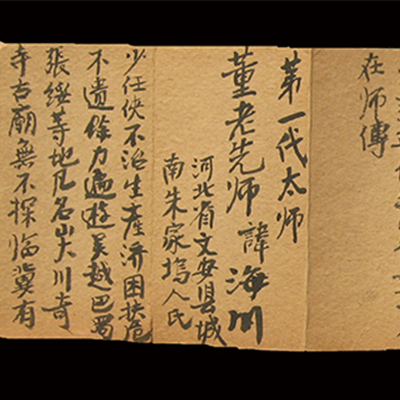 在师傅
第一代太师
董老先师 諱海川
河北省文安县城
南朱家塢人氏
少任侠不治生産济困扶危
不遗餘力遍遊吴越巴蜀
張綏等地凡名山大川奇
寺古廟無不探臨冀有